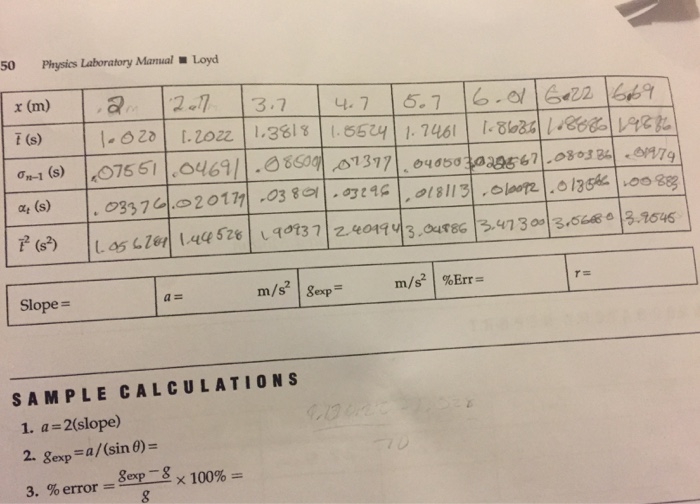 50 Physics Laboratory Manual ■ Loyd
x (m) .2m 2.7 3.7 4.7 5.7 6.01 6.22 6.69
t̄ (s) 1.020 1.2022 1.3818 1.5524 1.7461
σn−1 (s) .07551 .04691 .07377 .080386 .01979
αt (s) .03376 .020179 .03801 .03296 .018113 .00883
t̄² (s²) 1.44528 1.90937 2.40994 3.04886 3.47300 3.5668
Slope = a = m/s² gexp = m/s² %Err = r =
SAMPLE CALCULATIONS
1. a = 2(slope)
2. gexp = a/(sin θ) =
3. % error = gexp − g / g × 100% =